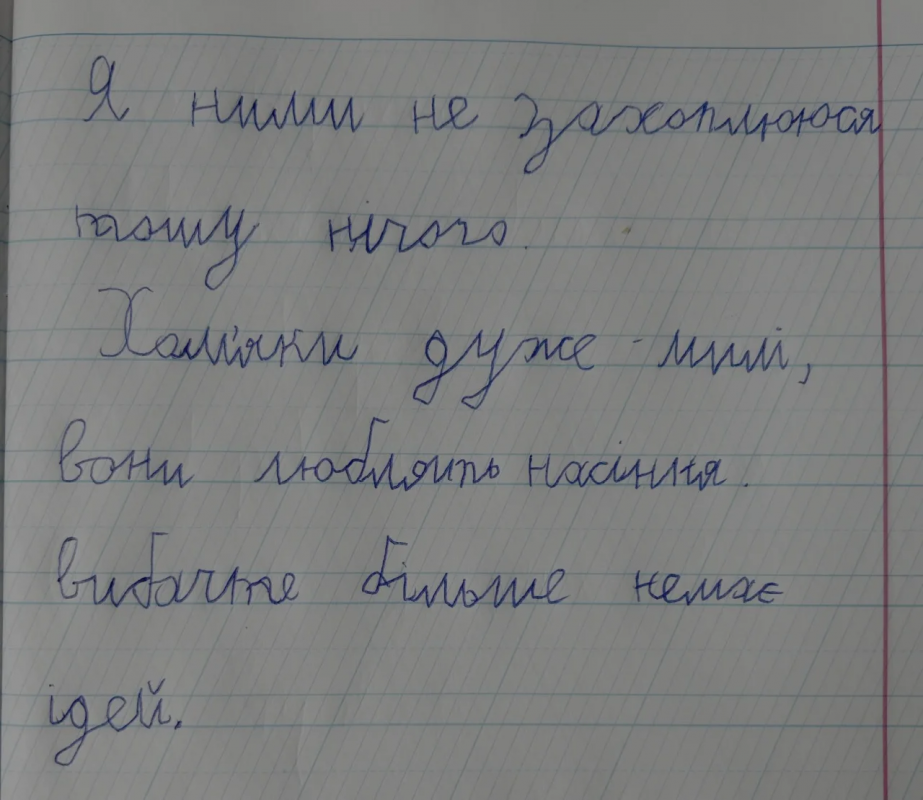 Я ними не захоплююся
тошу нічого.
Хом'яки дуже - милі,
вони люблять насіння.
вибачте більше немає
ідей.